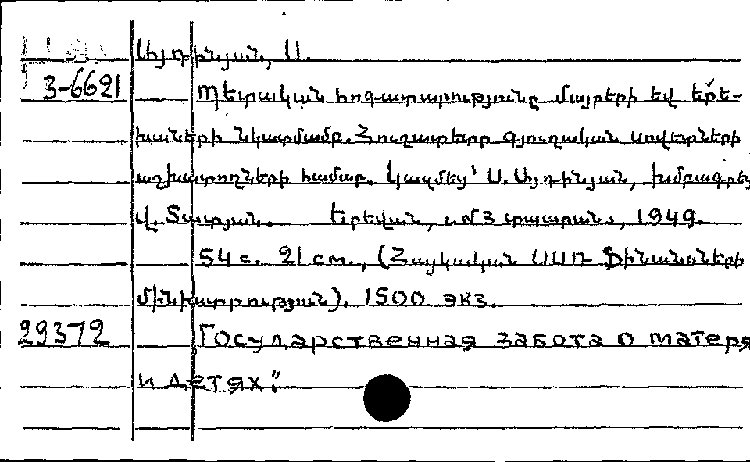 Այդինյան, Ս.
3-6621 Պետական հոգատարությունը մայրերի եվ երե-
խաների նկատմամբ. Հուշատետր գյուղական սովետների
աշխատողների համար. Կազմեց՝ Ս. Այդինյան, խմբագրեց
Վ. Տատյան. Երեվան, տպարան, 1949.
54 с. 21 см., (Հայկական ՍՍՌ Ֆինանսների
մինիստրություն). 1500 экз.
29372 Государственная забота о матеря
и детях".